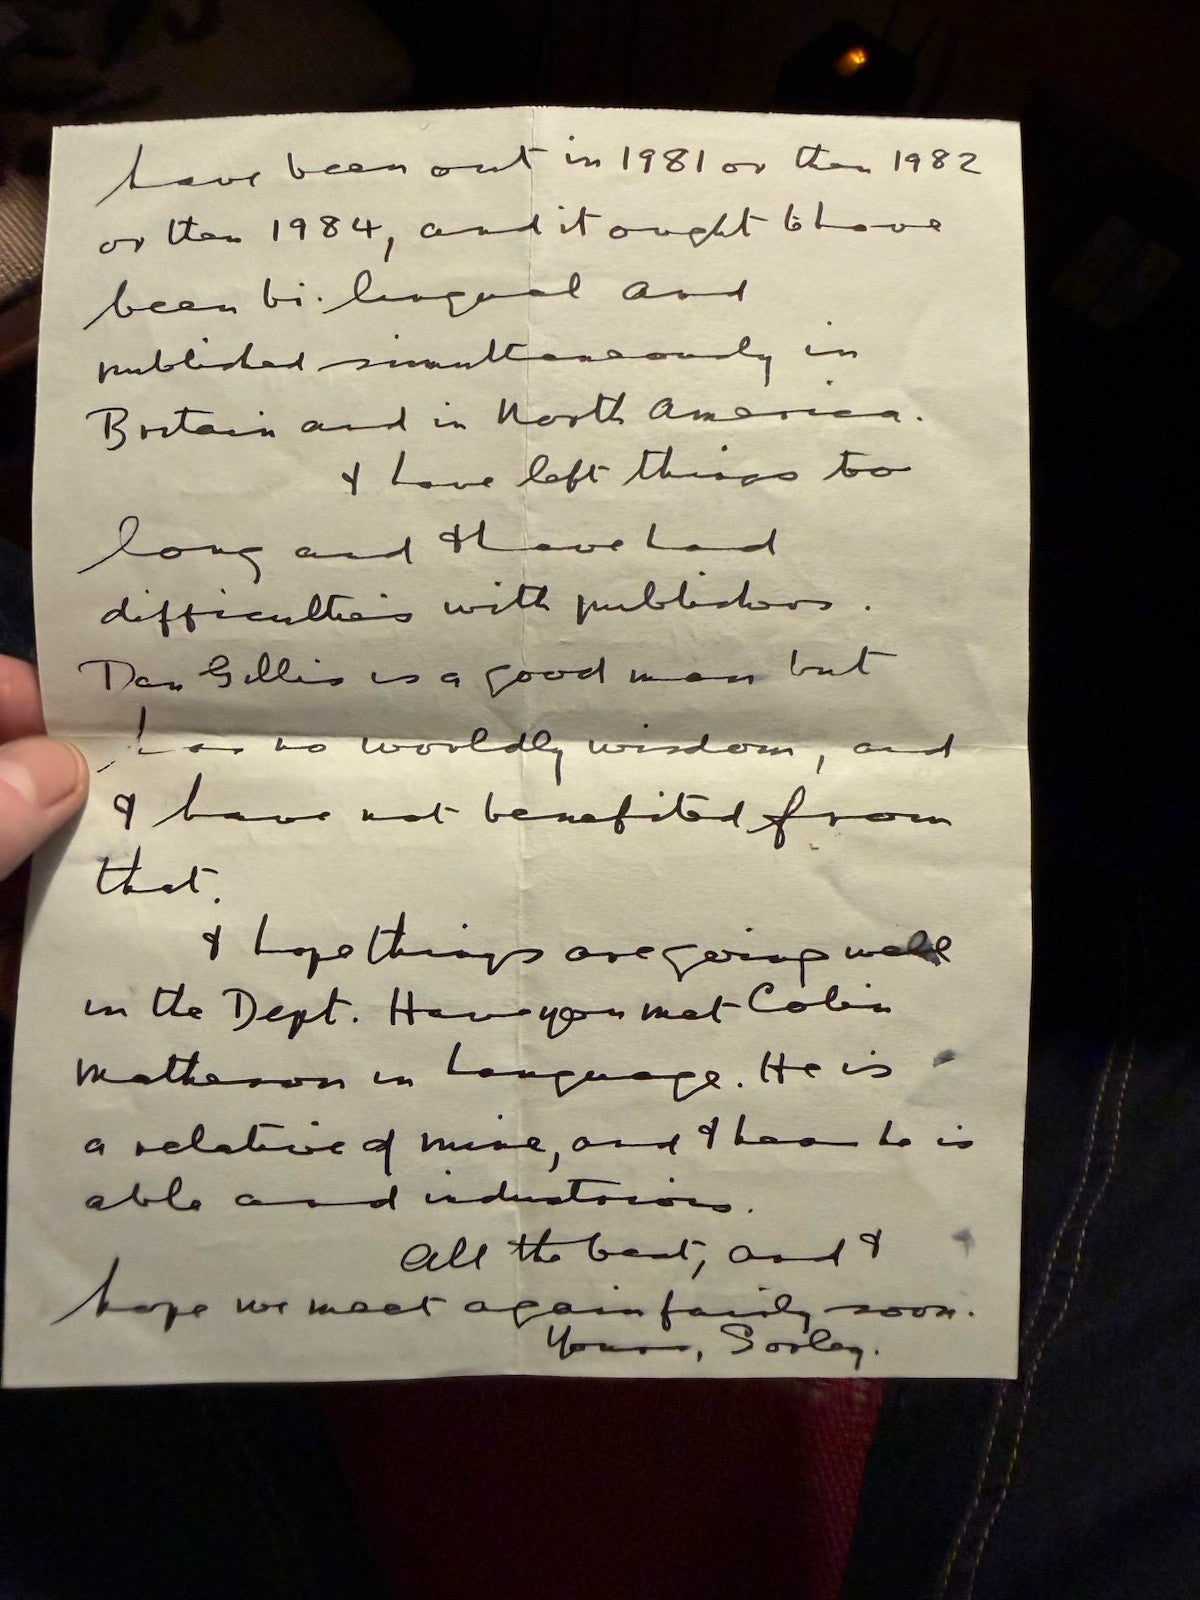 have been out in 1981 or then 1982
or then 1984, and it ought to have
been bi-lingual and
published simultaneously in
Britain and in North America.
I have left things too
long and I have had
difficulties with publishers.
Dan Gillis is a good man but
has no worldly wisdom, and
I have not benefited from
that.
I hope things are going well
in the Dept. Have you met Colin
Matheson in Language. He is
a relative of mine, and I hear he is
able and industrious.
All the best, and I
hope we meet again fairly soon.
Yours, Sorley.